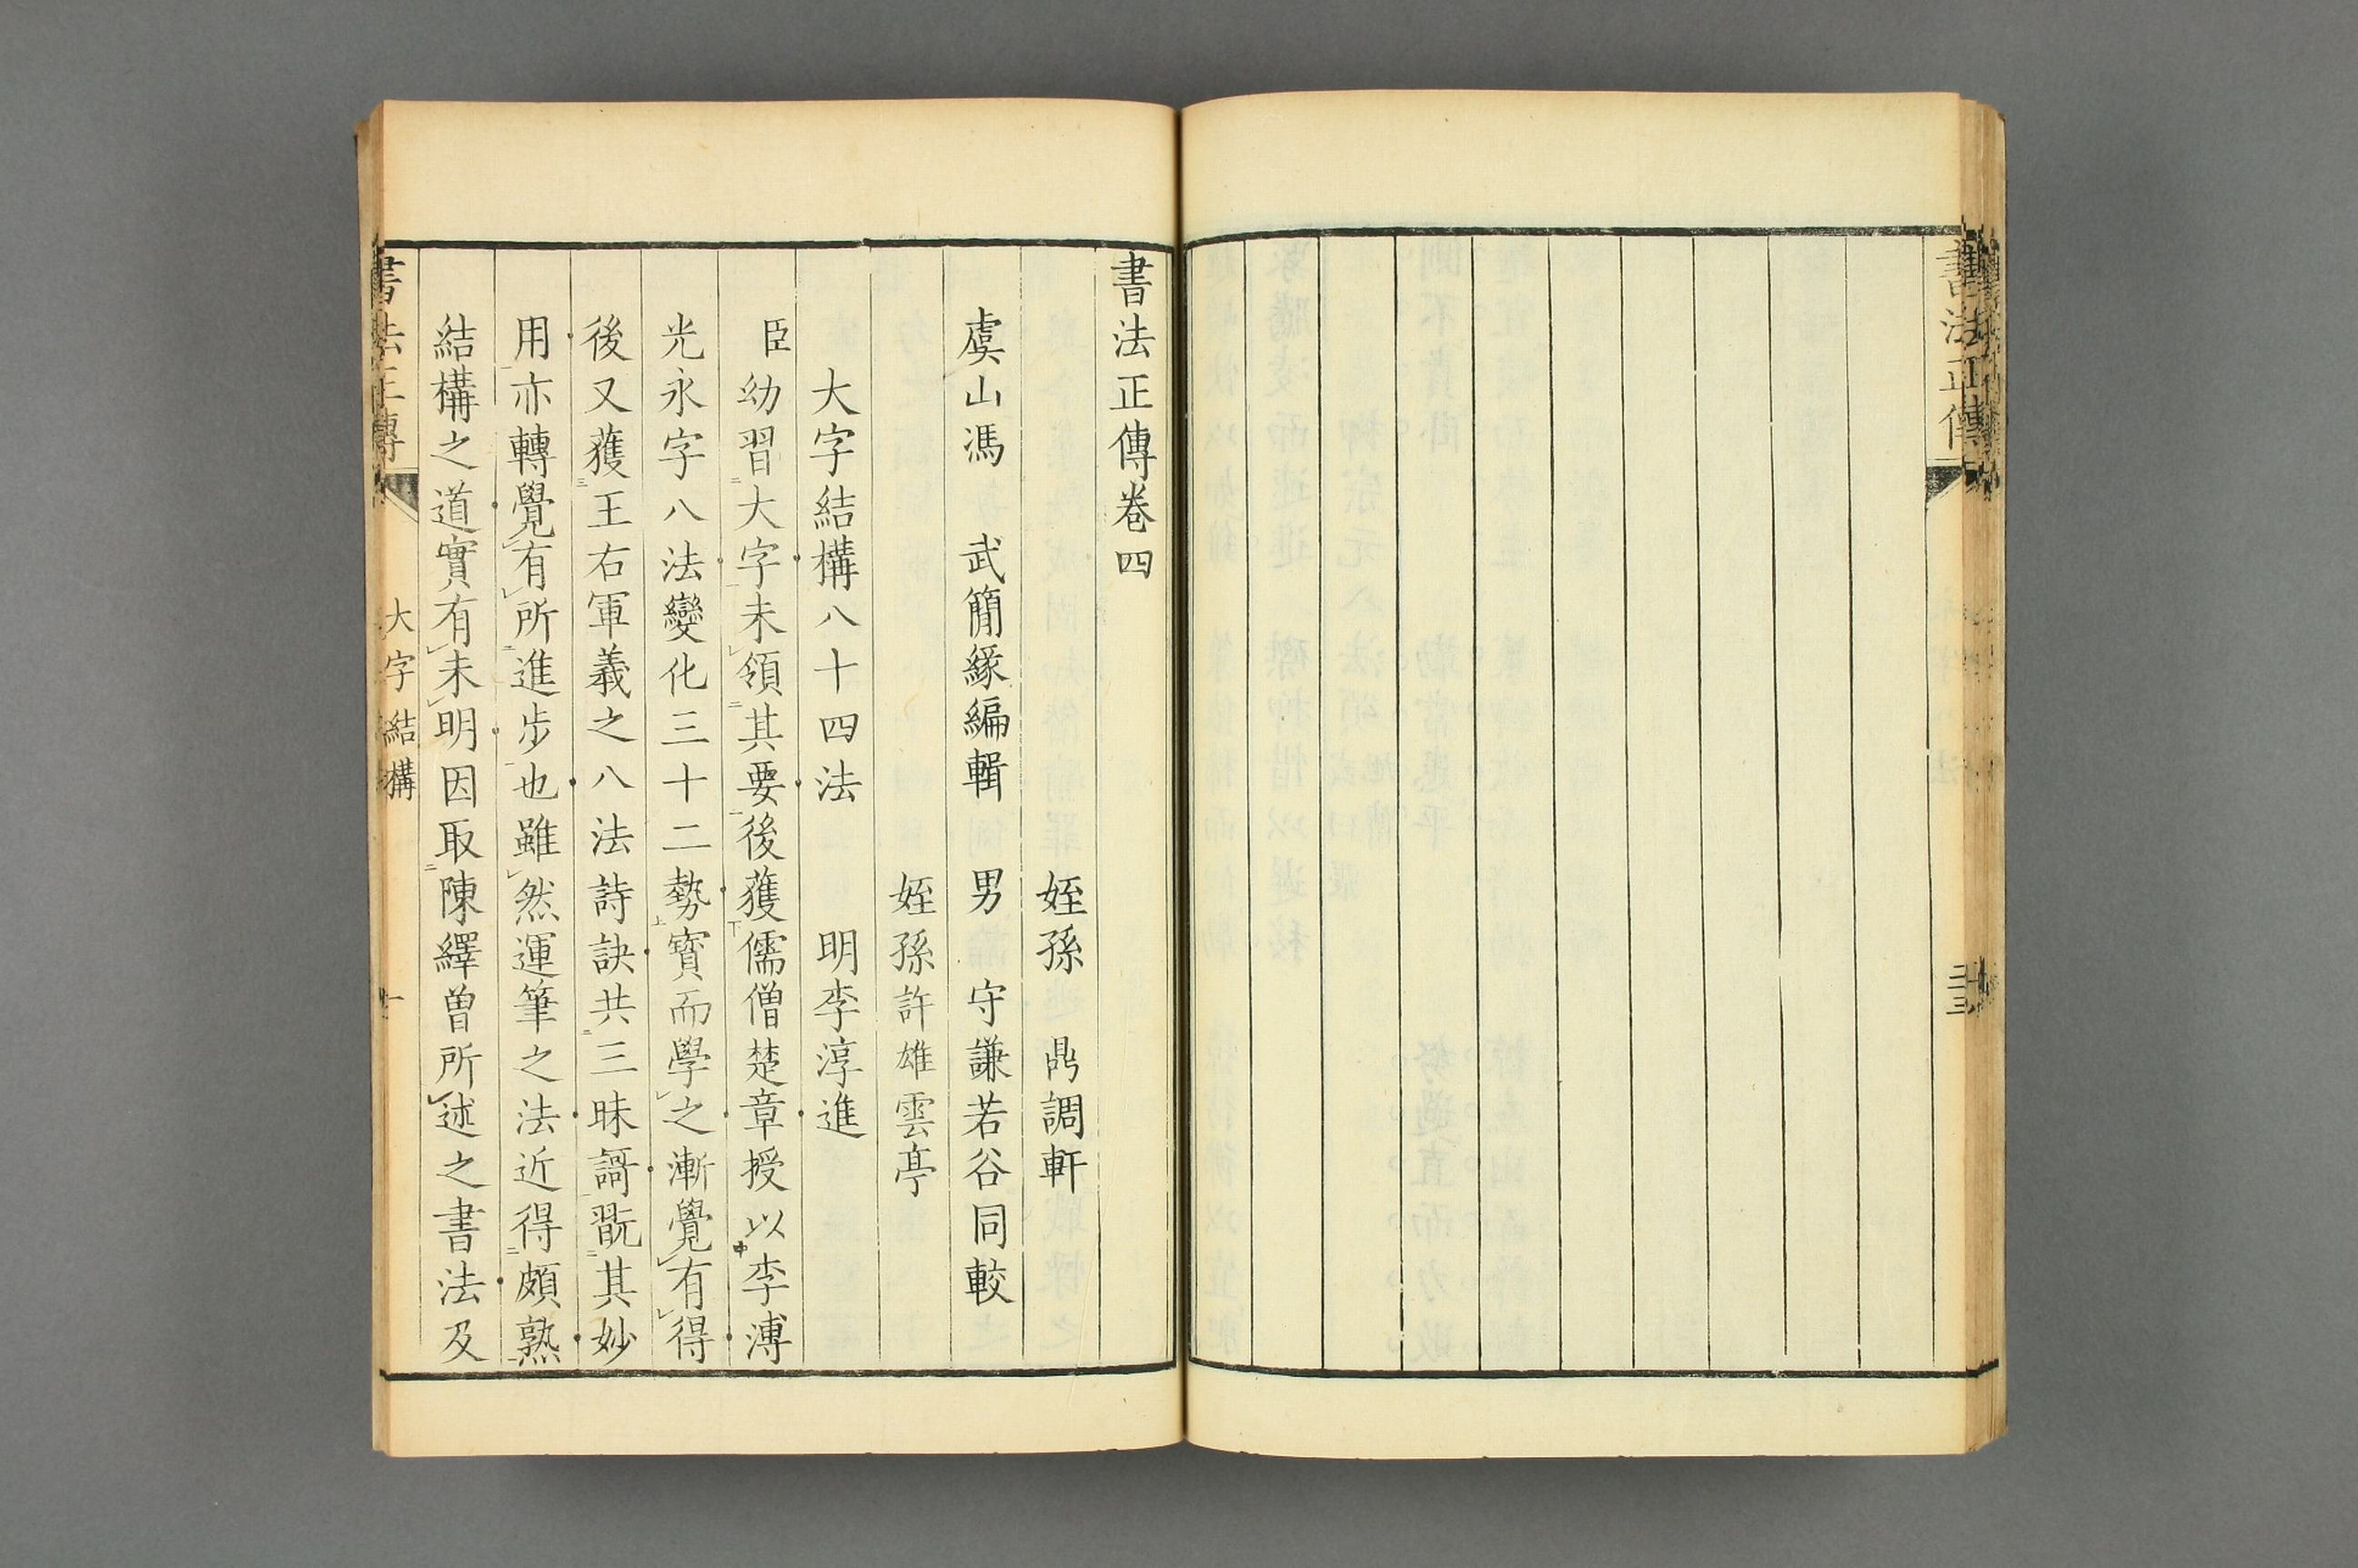 書法正傳
三十三
書法正傳卷四
姪孫 鼎調軒
虞山馮 武簡緣編輯 男 守謙若谷同較
姪孫許雄雲亭
大字結構八十四法 明李淳進
臣幼習大字未領其要後蒦儒僧楚章授以李溥
光永字八法變化三十二勢寳而學之漸覺有得
後又獲王右軍羲之八法詩訣共三昧謌翫其妙
用亦轉覺有所進步也雖然運筆之法近得頗熟
結構之道實有未明因取陳繹曾所述之書法及
書法正傳
大字結構
一